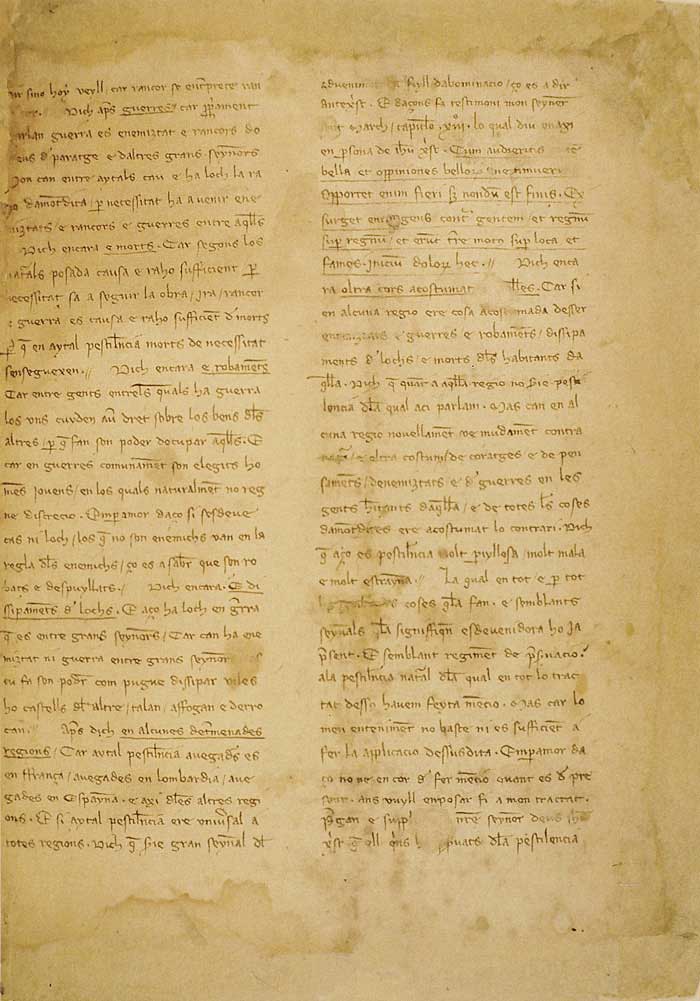 sino hoy veyll, car rancor se enterprete ran
Dich aprs guerres, car propriament
parlan guerra es enemiztat e rancors do
ens d paratge e daltres grans seynors
on can entre aytals cau e ha loch la ra
damotdita, p necessitat ha avenir ene
miztats e rancors e guerres entre aqlls
Dich encara e morts. Car segons los
naturals posada causa e raho sufficient p
necessitat sa a seguir la obra, Ira, rancor
e guerra es causa e raho sufficient d morts
p q en aytal pestilencia morts de necessitat
senseguexen. // Dich encara e robaments
Car entre gents entrels quals ha guerra
los uns cuyden au dret sobre los bens dls
altres, p q fan son poder docupar aqlls. E
car en guerres comunament son elegits ho
mes jovens, en los quals naturalment no reg
ne discrecio. Emperamor daco si sesdeve
cas ni loch, los q no son enemichs van en la
regla dls enemichs, ço es a saber que son ro
bats e despuyllats. // Dich encara. E di
ssipaments d lochs. E aço ha loch en grra
q es entre grans seynors, Car can ha ene
miztat ni guerra entre grans seynors
cu fa son poder com pugue dissipar viles
ho castells dl altre, talan, affogan e derro
can. Aprs dich en alcunes determenades
regions, Car aytal pestilencia avegades es
en ffrança, avegades en lombardia, ave
gades en Espanya. e axi dles altres regi
ons. E si aytal pestilencia ere universal a
totes regions. Dich q sie gran seynal dl
aduenim fyll dabominacio, ço es a dir
Antexrst. E daqons fa testimoni mon seyner
March, capitolo xiij. lo qual diu en axi
en psona de ihu xrst. Cum audieritis
bella et oppiniones bellor ne timueri
opportet enim fieri sz nondum est finis. Ex
surget enim gens contra gentem, et regnum
sup regnum, et erunt tre motus sup loca et
fames. Inicium dolor hec. // Dich enca
ra oltra cors acostumat lles. Car si
en alcuna regio ere cosa acostumada desser
enemiztats e guerres e robaments, dissipa
ments d lochs, e morts dls habitants da
qlla. Dich q quant a aqlla regio no sie pesti
lencia dla qual aci parlam. Mas can en al
cuna regio novellament ve mudament contra
natura e oltra costum, de coratges e de pen
saments, denemiztats e d guerres en les
gents habitants daqlla, e de totes les coses
damotdites ere acostumat lo contrari. Dich
q aço es pestilencia molt piyllosa, molt mala
e molt estranya. // La qual en tot e p tot
coses qlla fan. e semblants
seynals lla signiffiqn esdevenidora ho ja
psent. E semblant regiment de prsvacio.
ala pestilencia natural dla qual en tot lo trac
tat dessu havem feyta mencio. Mas car lo
meu enteniment no baste ni es sufficient a
fer la applicacio dessusdita. Emperamor da
ço no ne en cor d fer mencio quant es d pre
sent. ans vuyll emposar fi a mon tractat.
Prgan e supl nre seynor deus
xrst q ell qns puats dla pestilencia